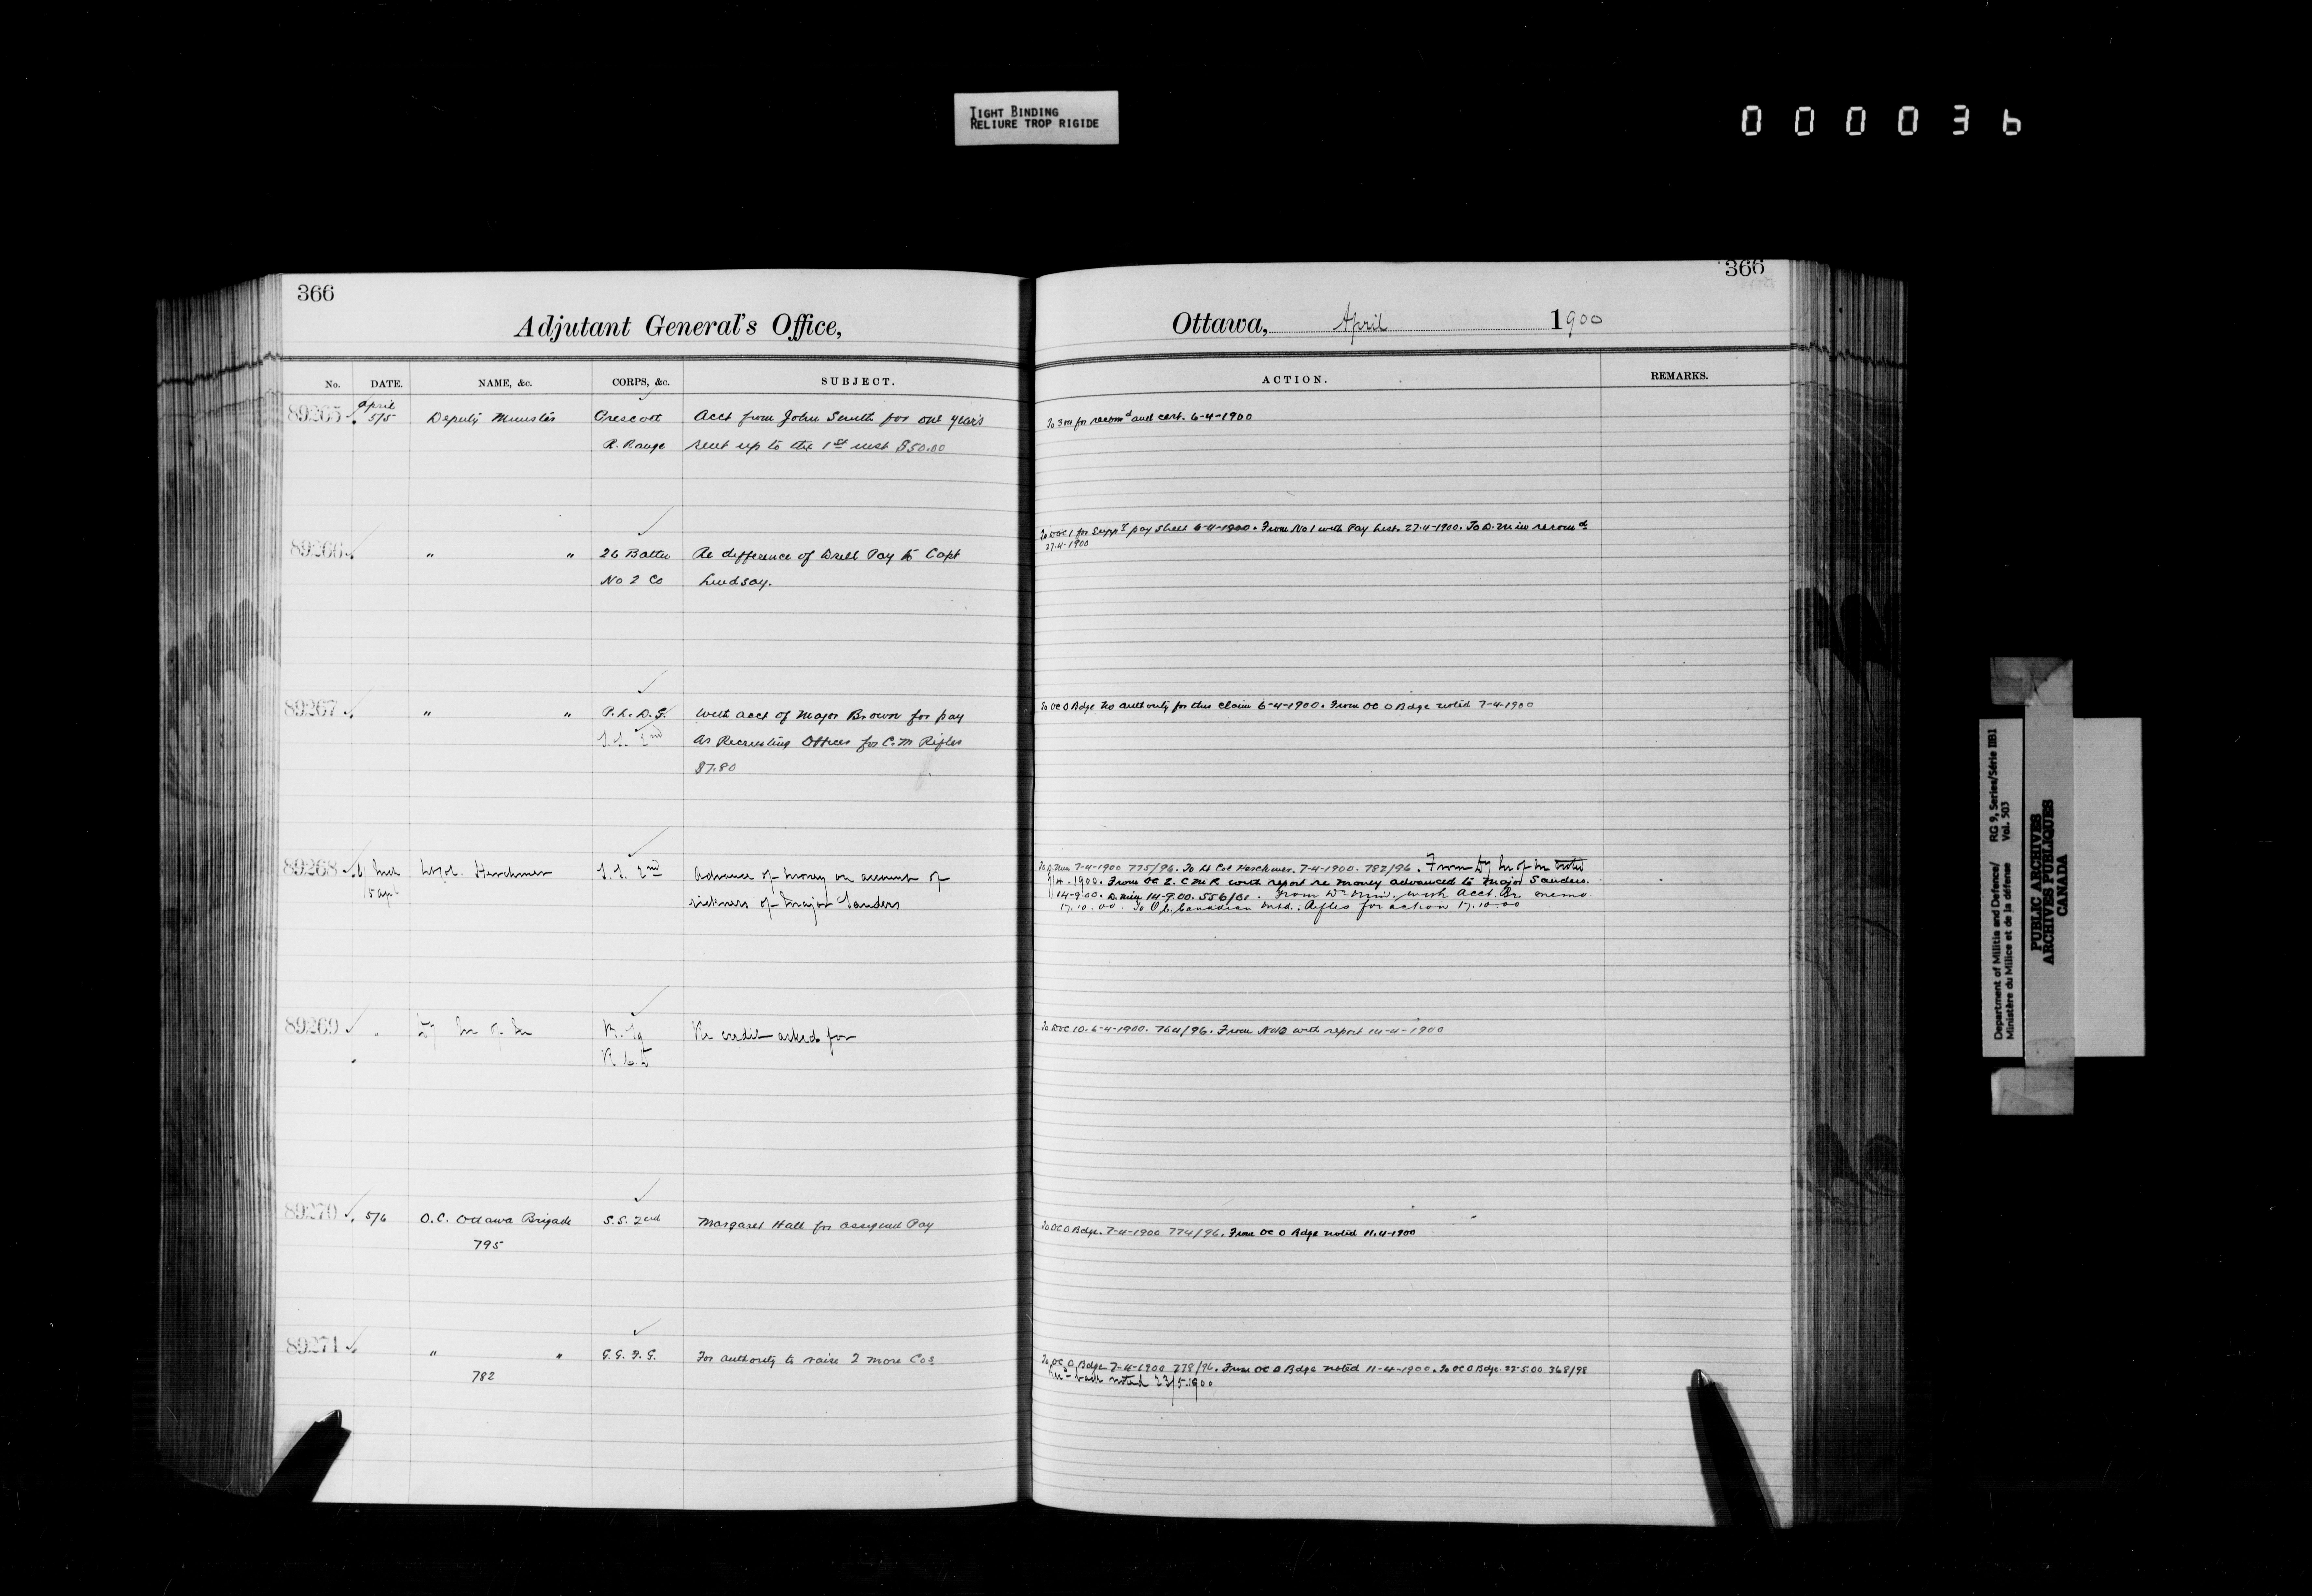 TIGHT BINDING
RELIURE TROP RIGIDE
000036
366
Adjutant General's Office,
No. DATE. NAME, &c. CORPS, &c. SUBJECT.
89265 April 5/5 Deputy Minister Prescott Acct from John Smith for one year's
R. Range rent up to the 1st inst $50.00
89266 " " 26 Battn Re difference of Drill Pay to Capt
No 2 Co Lindsay.
89267 " " P.L.D.G. With acct of Major Brown for pay
S.S. 2nd as Recruiting Officer for C.M Rifles
$7.80
89268 Herchmer S.S. 2nd Advance of money on account of
sickness of Major Sanders
89269 Re credit asked for
89270 5/6 O.C. Ottawa Brigade S.S. 2nd Margaret Hall for assigned Pay
795
89271 " " G.G.F.G. For authority to raise 2 more Cos
782
366
Ottawa, April 1900
ACTION. REMARKS.
for recomd and cert. 6-4-1900
To DOC 1 for Suppy pay sheet 6-4-1900. From No 1 with Pay List. 27-4-1900. To D. Min recomd
27-4-1900
To OC O Bdge no authority for this claim 6-4-1900. From OC O Bdge noted 7-4-1900
To D. Min 7-4-1900 775/96. To Lt Col Herchmer. 7-4-1900. 782/96. From noted
1900. From OC 2. C M R with report re money advanced to Major Sanders.
14-9-00. D. Min 14-9.00. 556/01. From with Acct. memo.
17.10.00. To O.C. Canadian Mtd. Rifles for action 17.10.00
To DOC 10. 6-4-1900. 764/96. From No 10 with report 14-4-1900
To OC O Bdge. 7-4-1900 774/96. From OC O Bdge noted 11-4-1900
To OC O Bdge 7-4-1900 778/96. From OC O Bdge noted 11-4-1900. To OC O Bdge. 22-5.00 368/98
back noted 23/5.1900
Department of Militia and Defence/ RG 9, Series/Série IIB1
Ministère du Milice et de la défense Vol. 503
PUBLIC ARCHIVES
ARCHIVES PUBLIQUES
CANADA